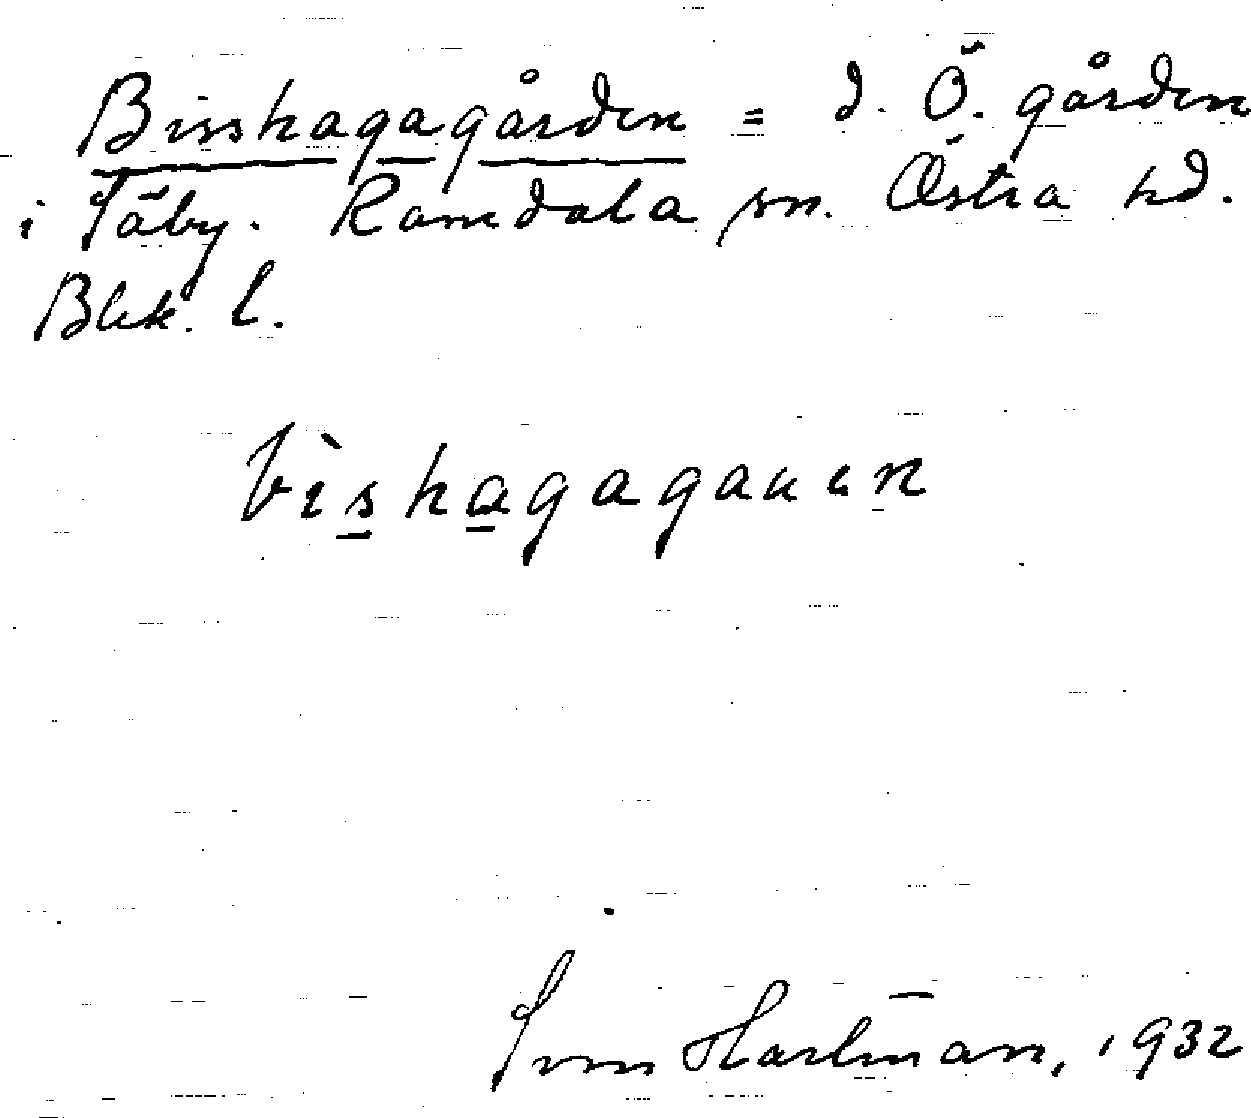 Bisshagagården = d. Ö. gården
i Täby. Ramdala sn. Östra hd.
Blek. l.
bìshagagauen
Sven Hartman, 1932